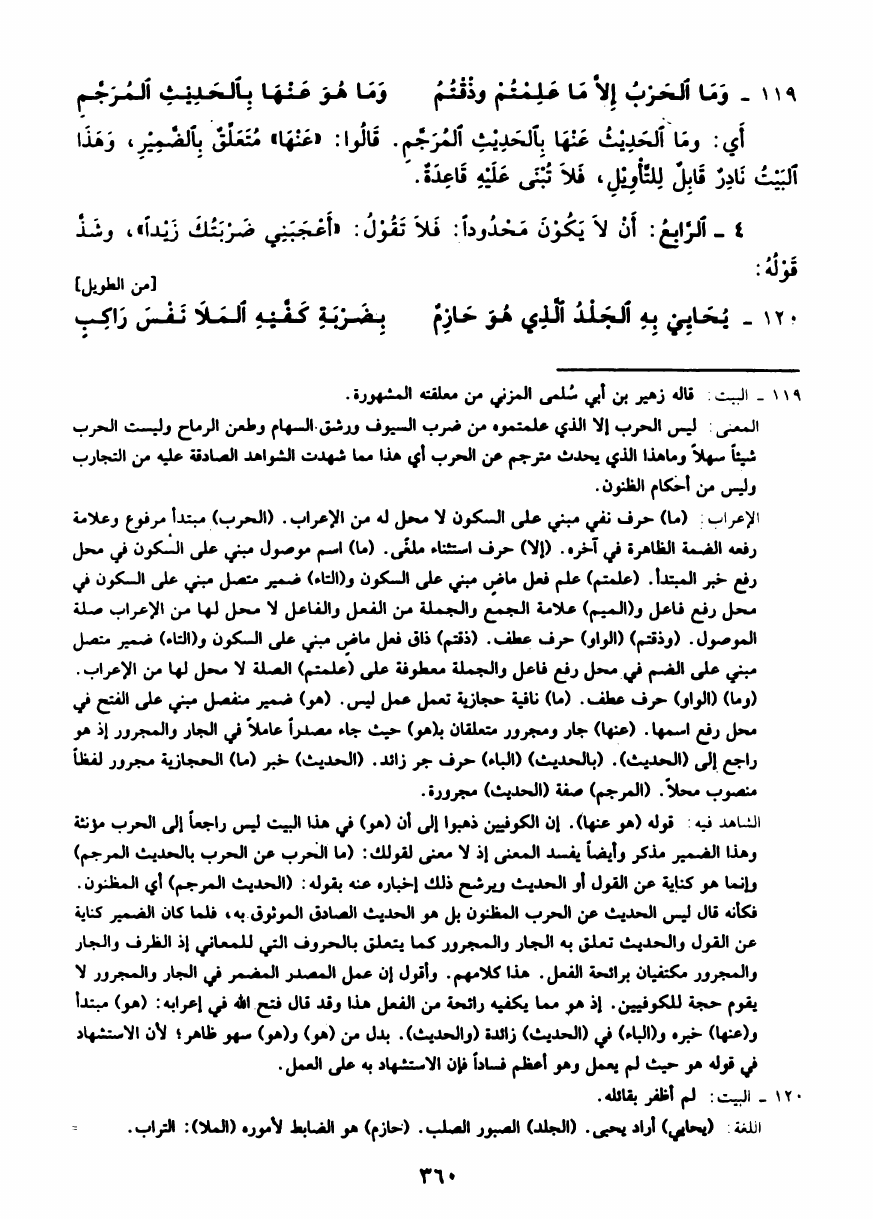 ١١٩ ـ وَمَا ٱلْحَرْبُ إِلاَّ مَا عَلِمْتُمْ وذُقْتُمُ     وَمَا هُوَ عَنْهَا بِٱلْحَدِيْثِ ٱلْمُرَجَّمِ
أَي: ومَا ٱلْحَدِيْثُ عَنْهَا بِٱلْحَدِيْثِ ٱلْمُرَجَّمِ. قَالُوا: «عَنْهَا» مُتَعَلِّقٌ بِٱلضَّمِيْرِ، وَهَذَا
ٱلبَيْتُ نَادِرٌ قَابِلٌ لِلتَّأوِيْلِ، فَلاَ تُبْنَى عَلَيْهِ قَاعِدَةٌ.
٤ ـ ٱلرَّابِعُ: أَنْ لاَ يَكُوْنَ مَحْدُوداً: فَلاَ تَقُوْلُ: «أَعْجَبَنِي ضَرْبَتُكَ زَيْداً»، وشَذَّ
قَوْلُهُ:
[من الطويل]
١٢٠ ـ يُحَايِيْ بِهِ ٱلْجَلْدُ ٱلَّذِي هُوَ حَازِمٌ     بِضَرْبَةِ كَفَّيْهِ ٱلْمَلَا نَفْسَ رَاكِبِ
١١٩ ـ البيت: قاله زهير بن أبي سُلمى المزني من معلقته المشهورة.
المعنى: ليس الحرب إلا الذي علمتموه من ضرب السيوف ورشق السهام وطعن الرماح وليست الحرب
شيئاً سهلاً وماهذا الذي يحدث مترجم عن الحرب أي هذا مما شهدت الشواهد الصادقة عليه من التجارب
وليس من أحكام الظنون.
الإعراب: (ما) حرف نفي مبني على السكون لا محل له من الإعراب. (الحرب) مبتدأ مرفوع وعلامة
رفعه الضمة الظاهرة في آخره. (إلا) حرف استثناء ملغًى. (ما) اسم موصول مبني على السكون في محل
رفع خبر المبتدأ. (علمتم) علم فعل ماضٍ مبني على السكون و(التاء) ضمير متصل مبني على السكون في
محل رفع فاعل و(الميم) علامة الجمع والجملة من الفعل والفاعل لا محل لها من الإعراب صلة
الموصول. (وذقتم) (الواو) حرف عطف. (ذقتم) ذاق فعل ماضٍ مبني على السكون و(التاء) ضمير متصل
مبني على الضم في محل رفع فاعل والجملة معطوفة على (علمتم) الصلة لا محل لها من الإعراب.
(وما) (الواو) حرف عطف. (ما) نافية حجازية تعمل عمل ليس. (هو) ضمير منفصل مبني على الفتح في
محل رفع اسمها. (عنها) جار ومجرور متعلقان بـ(هو) حيث جاء مصدراً عاملاً في الجار والمجرور إذ هو
راجع إلى (الحديث). (بالحديث) (الباء) حرف جر زائد. (الحديث) خبر (ما) الحجازية مجرور لفظاً
منصوب محلاً. (المرجم) صفة (الحديث) مجرورة.
الشاهد فيه: قوله (هو عنها). إن الكوفيين ذهبوا إلى أن (هو) في هذا البيت ليس راجعاً إلى الحرب مؤنثة
وهذا الضمير مذكر وأيضاً يفسد المعنى إذ لا معنى لقولك: (ما الحرب عن الحرب بالحديث المرجم)
وإنما هو كناية عن القول أو الحديث ويرشح ذلك إخباره عنه بقوله: (الحديث المرجم) أي المظنون.
فكأنه قال ليس الحديث عن الحرب المظنون بل هو الحديث الصادق الموثوق به، فلما كان الضمير كناية
عن القول والحديث تعلق به الجار والمجرور كما يتعلق بالحروف التي للمعاني إذ الظرف والجار
والمجرور مكتفيان برائحة الفعل. هذا كلامهم. وأقول إن عمل المصدر المضمر في الجار والمجرور لا
يقوم حجة للكوفيين. إذ هو مما يكفيه رائحة من الفعل هذا وقد قال فتح الله في إعرابه: (هو) مبتدأ
و(عنها) خبره و(الباء) في (الحديث) زائدة (والحديث). بدل من (هو) و(هو) سهو ظاهر؛ لأن الاستشهاد
في قوله هو حيث لم يعمل وهو أعظم فساداً فإن الاستشهاد به على العمل.
١٢٠ ـ البيت: لم أظفر بقائله.
اللغة: (يحايي) أراد يحيى. (الجلد) الصبور الصلب. (حازم) هو الضابط لأموره (الملا): التراب. =
٣٦٠